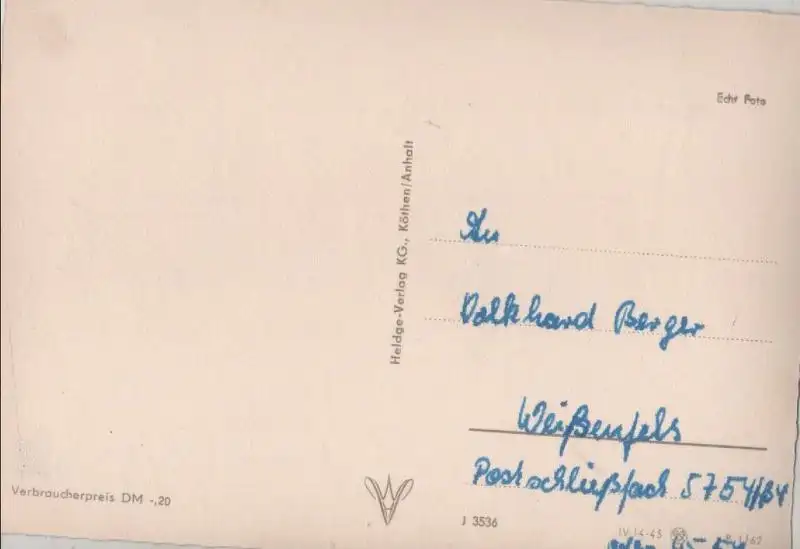 Echt Foto
Heldge-Verlag KG., Köthen/Anhalt
An
Volkhard Berger
Weißenfels
Postschließfach 5754/B4
Verbraucherpreis DM -,20
J 3536
IV-14-45